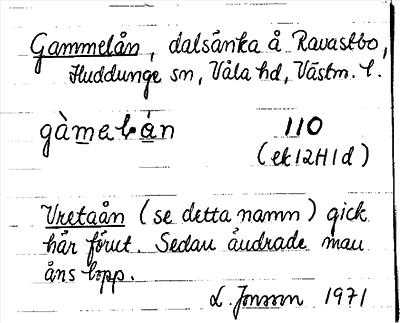 Gammelån, dalsänka å Ravastbo,
Huddunge sn, Våla hd, Västm. l.
gàmelån 110
(ek 12H1d)
Vretaån (se detta namn) gick
här förut. Sedan ändrade man
åns lopp.
L. Jonsson 1971